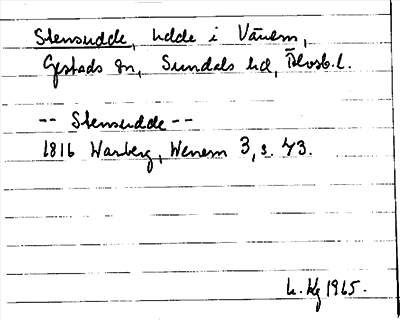 Stensudde, udde i Vänern,
Gestads sn, Sundals hd, Älvsb. l.
-- Stensudde --
1816 Warberg, Wenern 3, s. 43.
L. Hg 1965.